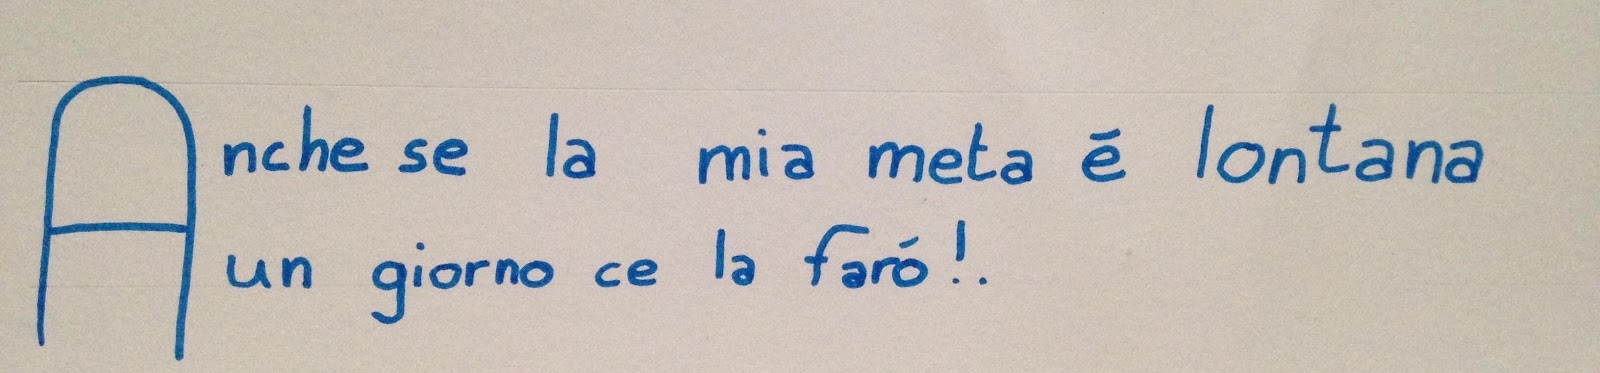 Anche se la mia meta é lontana
un giorno ce la faró!.